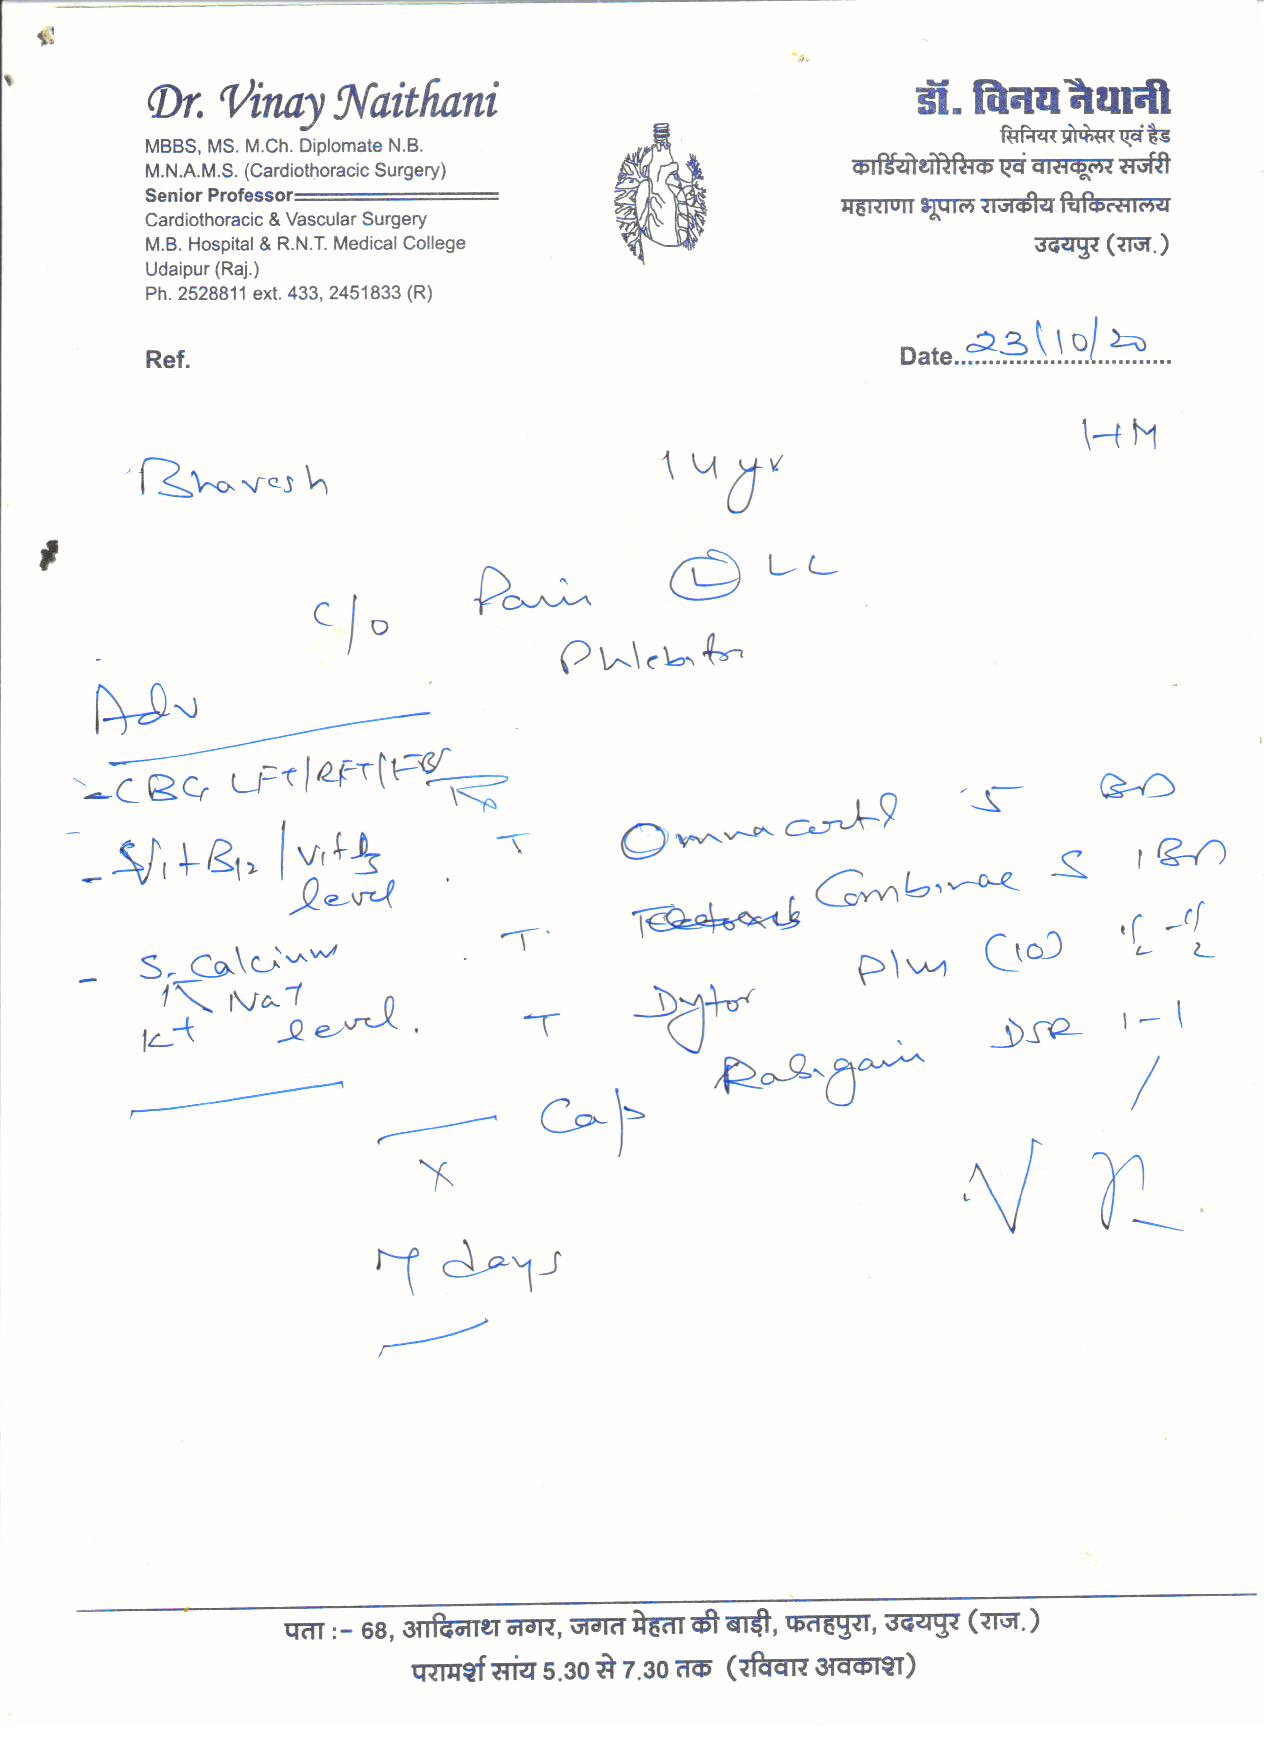 Dr. Vinay Naithani
MBBS, MS. M.Ch. Diplomate N.B.
M.N.A.M.S. (Cardiothoracic Surgery)
Senior Professor
Cardiothoracic & Vascular Surgery
M.B. Hospital & R.N.T. Medical College
Udaipur (Raj.)
Ph. 2528811 ext. 433, 2451833 (R)
डॉ. विनय नैथानी
सिनियर प्रोफेसर एवं हैड
कार्डियोथोरेसिक एवं वासकूलर सर्जरी
महाराणा भूपाल राजकीय चिकित्सालय
उदयपुर (राज.)
Ref.
Date 23/10/20
HM
Bhavesh 14 yr
C/o Pain (L) LL
Adv
- CBC LFT/RFT/
- Vit B12 / Vit D3
level
- S. Calcium
Na+
K+ level.
T Omnacortil 5 BD
T. 1 BD
T Dytor Plus (10) 1/2 - 1/2
Cap Rabigain DSR 1-1
x
7 days
पता :- 68, आदिनाथ नगर, जगत मेहता की बाड़ी, फतहपुरा, उदयपुर (राज.)
परामर्श सांय 5.30 से 7.30 तक (रविवार अवकाश)